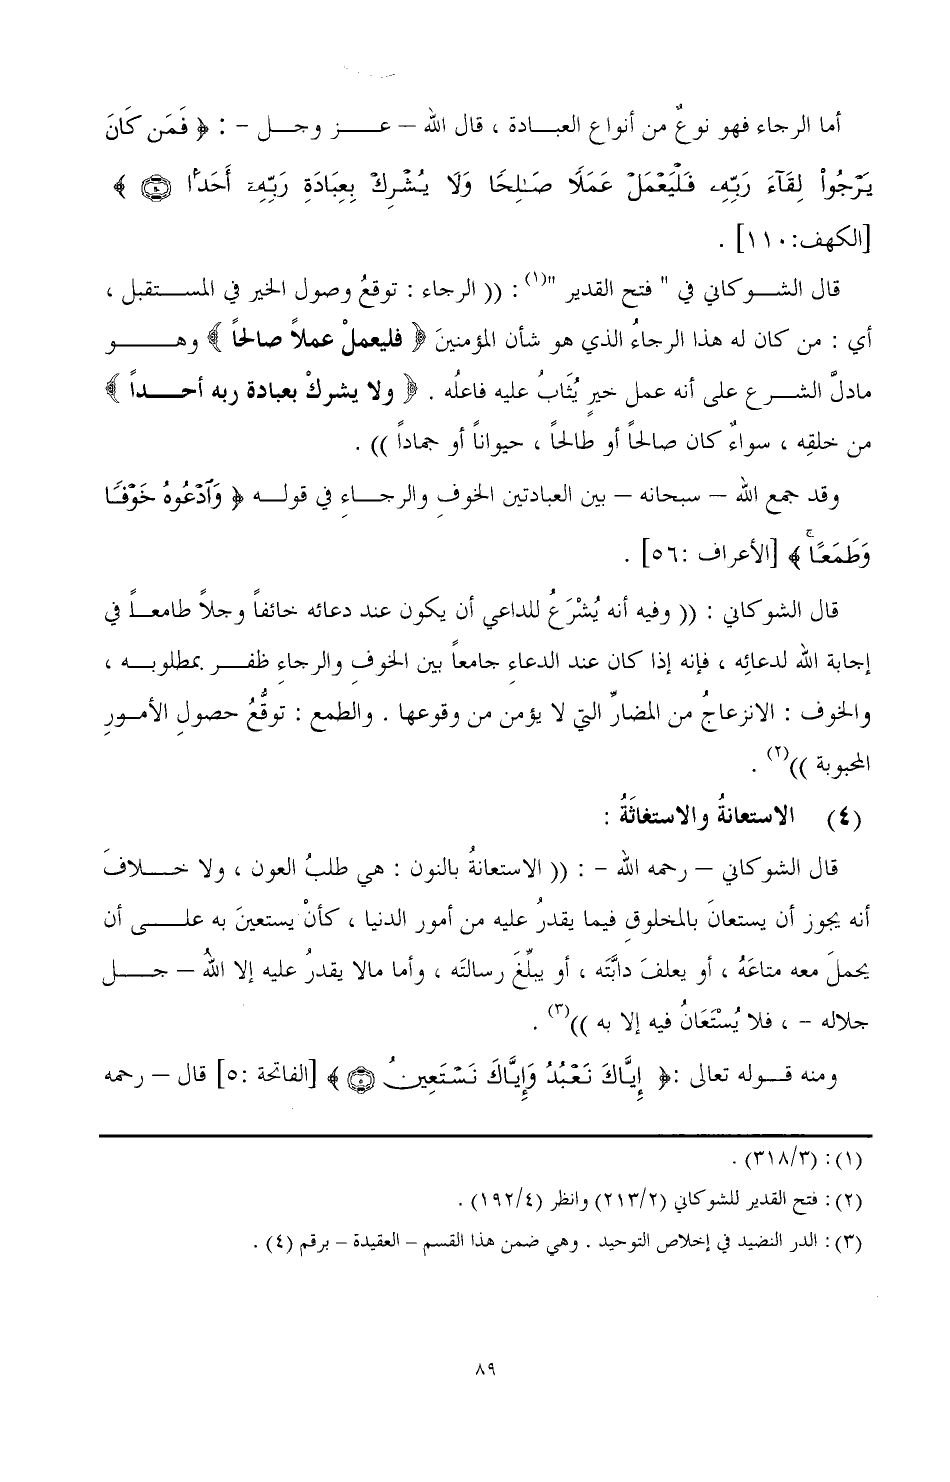 أما الرجاء فهو نوعٌ من أنواع العبادة ، قال الله – عز وجل – : ﴿ فَمَن كَانَ
يَرْجُواْ لِقَآءَ رَبِّهِۦ فَلْيَعْمَلْ عَمَلًا صَٰلِحًا وَلَا يُشْرِكْ بِعِبَادَةِ رَبِّهِۦٓ أَحَدًۢا ﴾
[الكهف:١١٠] .
قال الشوكاني في " فتح القدير "(١) : (( الرجاء : توقعُ وصول الخير في المستقبل ،
أي : من كان له هذا الرجاءُ الذي هو شأن المؤمنينَ ﴿ فليعملْ عملاً صالحاً ﴾ وهو
مادلَّ الشرع على أنه عمل خيرٍ يُثَابُ عليه فاعلُه . ﴿ ولا يشركْ بعبادة ربه أحداً ﴾
من خلقِه ، سواءٌ كان صالحاً أو طالحاً ، حيواناً أو جماداً )) .
وقد جمع الله – سبحانه – بين العبادتين الخوفِ والرجاءِ في قوله ﴿ وَٱدْعُوهُ خَوْفًا
وَطَمَعًا ۚ ﴾ [الأعراف :٥٦] .
قال الشوكاني : (( وفيه أنه يُشْرَعُ للداعي أن يكون عند دعائه خائفاً وجلاً طامعاً في
إجابة الله لدعائِه ، فإنه إذا كان عند الدعاءِ جامعاً بين الخوفِ والرجاءِ ظفر بمطلوبه ،
والخوف : الانزعاجُ من المضارِّ التي لا يؤمن من وقوعها . والطمع : توقُّعُ حصولِ الأمورِ
المحبوبة ))(٢) .
(٤) الاستعانةُ والاستغاثَةُ :
قال الشوكاني – رحمه الله – : (( الاستعانةُ بالنون : هي طلبُ العون ، ولا خلافَ
أنه يجوز أن يستعانَ بالمخلوقِ فيما يقدرُ عليه من أمور الدنيا ، كأنْ يستعينَ به على أن
يحملَ معه متاعَهُ ، أو يعلفَ دابَّتَه ، أو يبلِّغَ رسالتَه ، وأما مالا يقدرُ عليه إلا اللهُ – جل
جلاله – ، فلا يُسْتَعَانُ فيه إلا به ))(٣) .
ومنه قوله تعالى :﴿ إِيَّاكَ نَعْبُدُ وَإِيَّاكَ نَسْتَعِينُ ۝٥ ﴾ [الفاتحة :٥] قال – رحمه
(١) : (٣١٨/٣) .
(٢) : فتح القدير للشوكاني (٢١٣/٢) وانظر (١٩٢/٤) .
(٣) : الدر النضيد في إخلاص التوحيد . وهي ضمن هذا القسم – العقيدة – برقم (٤) .
٨٩